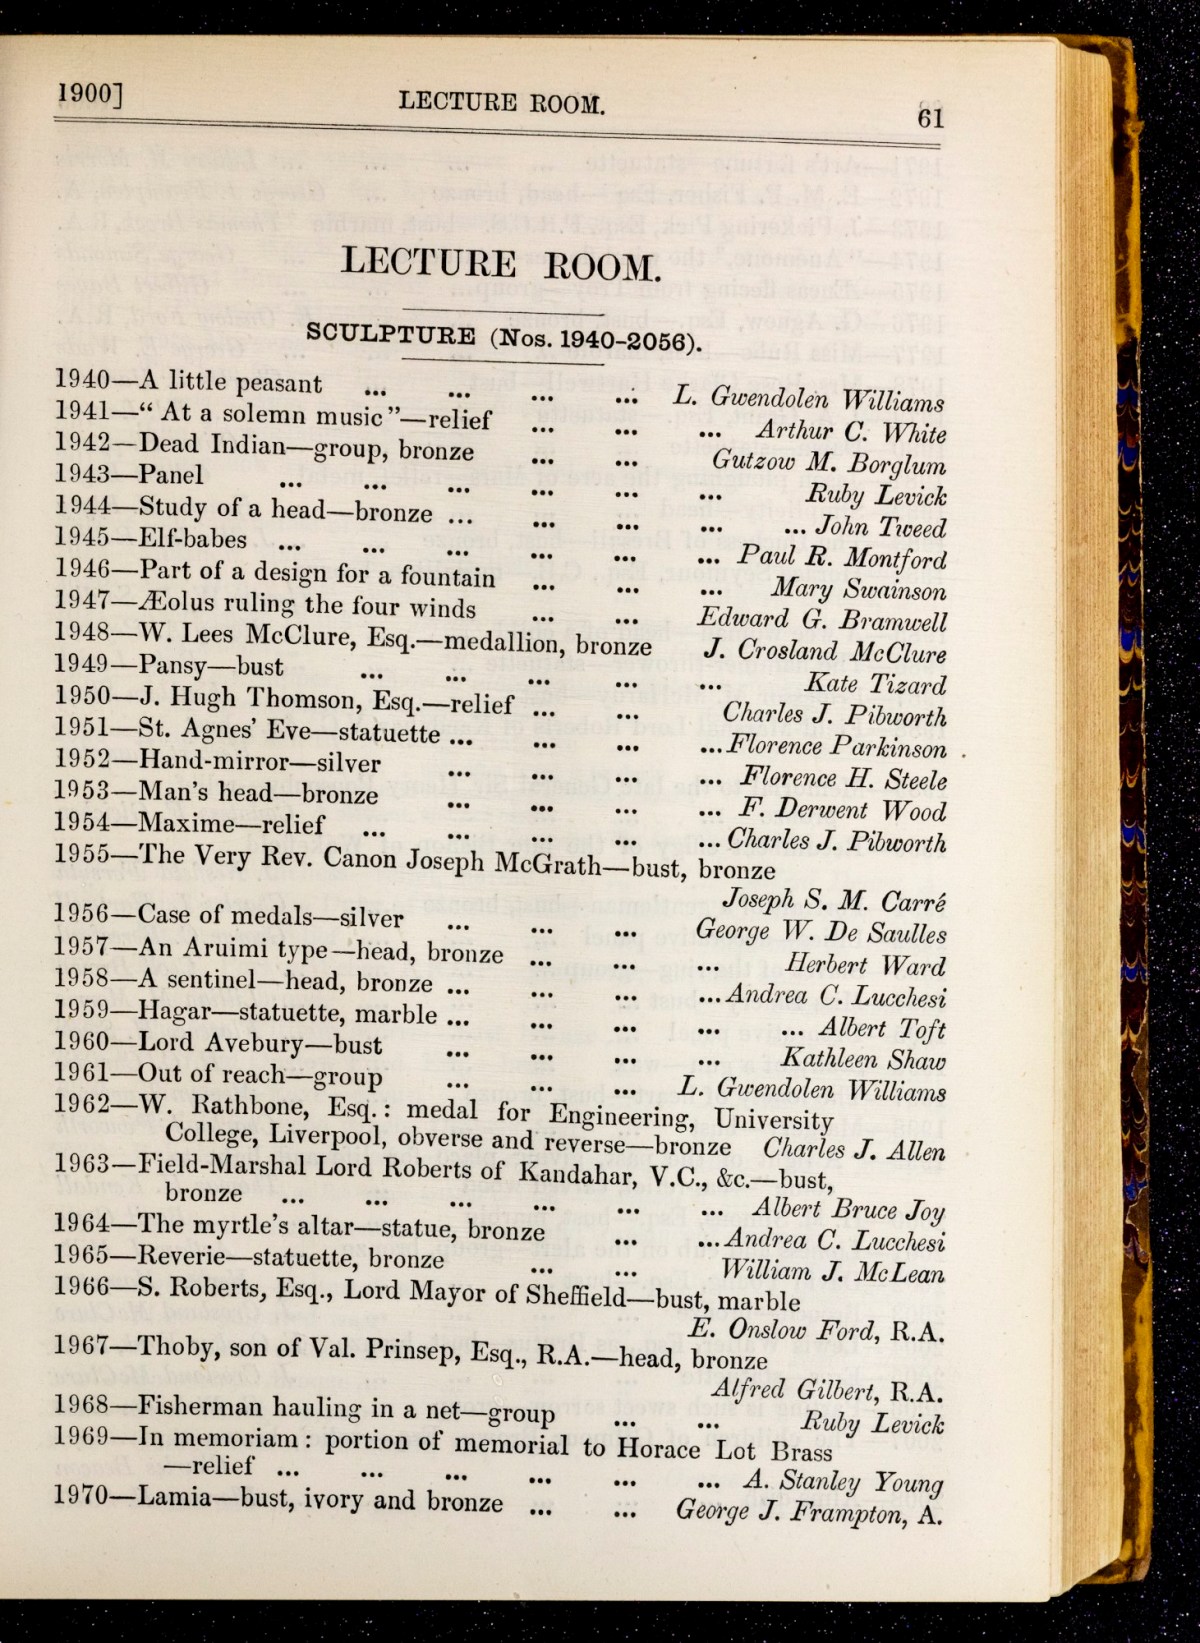 1900] LECTURE ROOM. 61
LECTURE ROOM.
SCULPTURE (Nos. 1940-2056).
1940—A little peasant ... ... ... ... L. Gwendolen Williams
1941—“ At a solemn music”—relief ... ... ... Arthur C. White
1942—Dead Indian—group, bronze ... ... Gutzow M. Borglum
1943—Panel ... ... ... ... ... ... Ruby Levick
1944—Study of a head—bronze ... ... ... ... ... John Tweed
1945—Elf-babes ... ... ... ... ... ... Paul R. Montford
1946—Part of a design for a fountain ... ... ... Mary Swainson
1947—Æolus ruling the four winds ... ... Edward G. Bramwell
1948—W. Lees McClure, Esq.—medallion, bronze J. Crosland McClure
1949—Pansy—bust ... ... ... ... ... Kate Tizard
1950—J. Hugh Thomson, Esq.—relief ... ... Charles J. Pibworth
1951—St. Agnes’ Eve—statuette ... ... ... ... Florence Parkinson
1952—Hand-mirror—silver ... ... ... ... Florence H. Steele
1953—Man’s head—bronze ... ... ... ... F. Derwent Wood
1954—Maxime—relief ... ... ... ... ... Charles J. Pibworth
1955—The Very Rev. Canon Joseph McGrath—bust, bronze
Joseph S. M. Carré
1956—Case of medals—silver ... ... ... George W. De Saulles
1957—An Aruimi type—head, bronze ... ... ... Herbert Ward
1958—A sentinel—head, bronze ... ... ... ... Andrea C. Lucchesi
1959—Hagar—statuette, marble ... ... ... ... ... Albert Toft
1960—Lord Avebury—bust ... ... ... ... Kathleen Shaw
1961—Out of reach—group ... ... ... L. Gwendolen Williams
1962—W. Rathbone, Esq.: medal for Engineering, University
College, Liverpool, obverse and reverse—bronze Charles J. Allen
1963—Field-Marshal Lord Roberts of Kandahar, V.C., &c.—bust,
bronze ... ... ... ... ... ... Albert Bruce Joy
1964—The myrtle’s altar—statue, bronze ... ... Andrea C. Lucchesi
1965—Reverie—statuette, bronze ... ... William J. McLean
1966—S. Roberts, Esq., Lord Mayor of Sheffield—bust, marble
E. Onslow Ford, R.A.
1967—Thoby, son of Val. Prinsep, Esq., R.A.—head, bronze
Alfred Gilbert, R.A.
1968—Fisherman hauling in a net—group ... ... Ruby Levick
1969—In memoriam: portion of memorial to Horace Lot Brass
—relief ... ... ... ... ... ... A. Stanley Young
1970—Lamia—bust, ivory and bronze ... ... George J. Frampton, A.